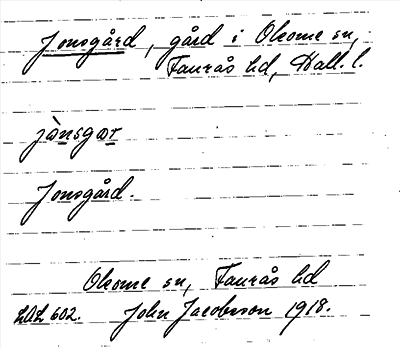 Jonsgård, gård i Okome sn,
Faurås hd, Hall. l.
jànsgær
Jonsgård.
Okome sn, Faurås hd
LAL 602. John Jacobsson 1918.